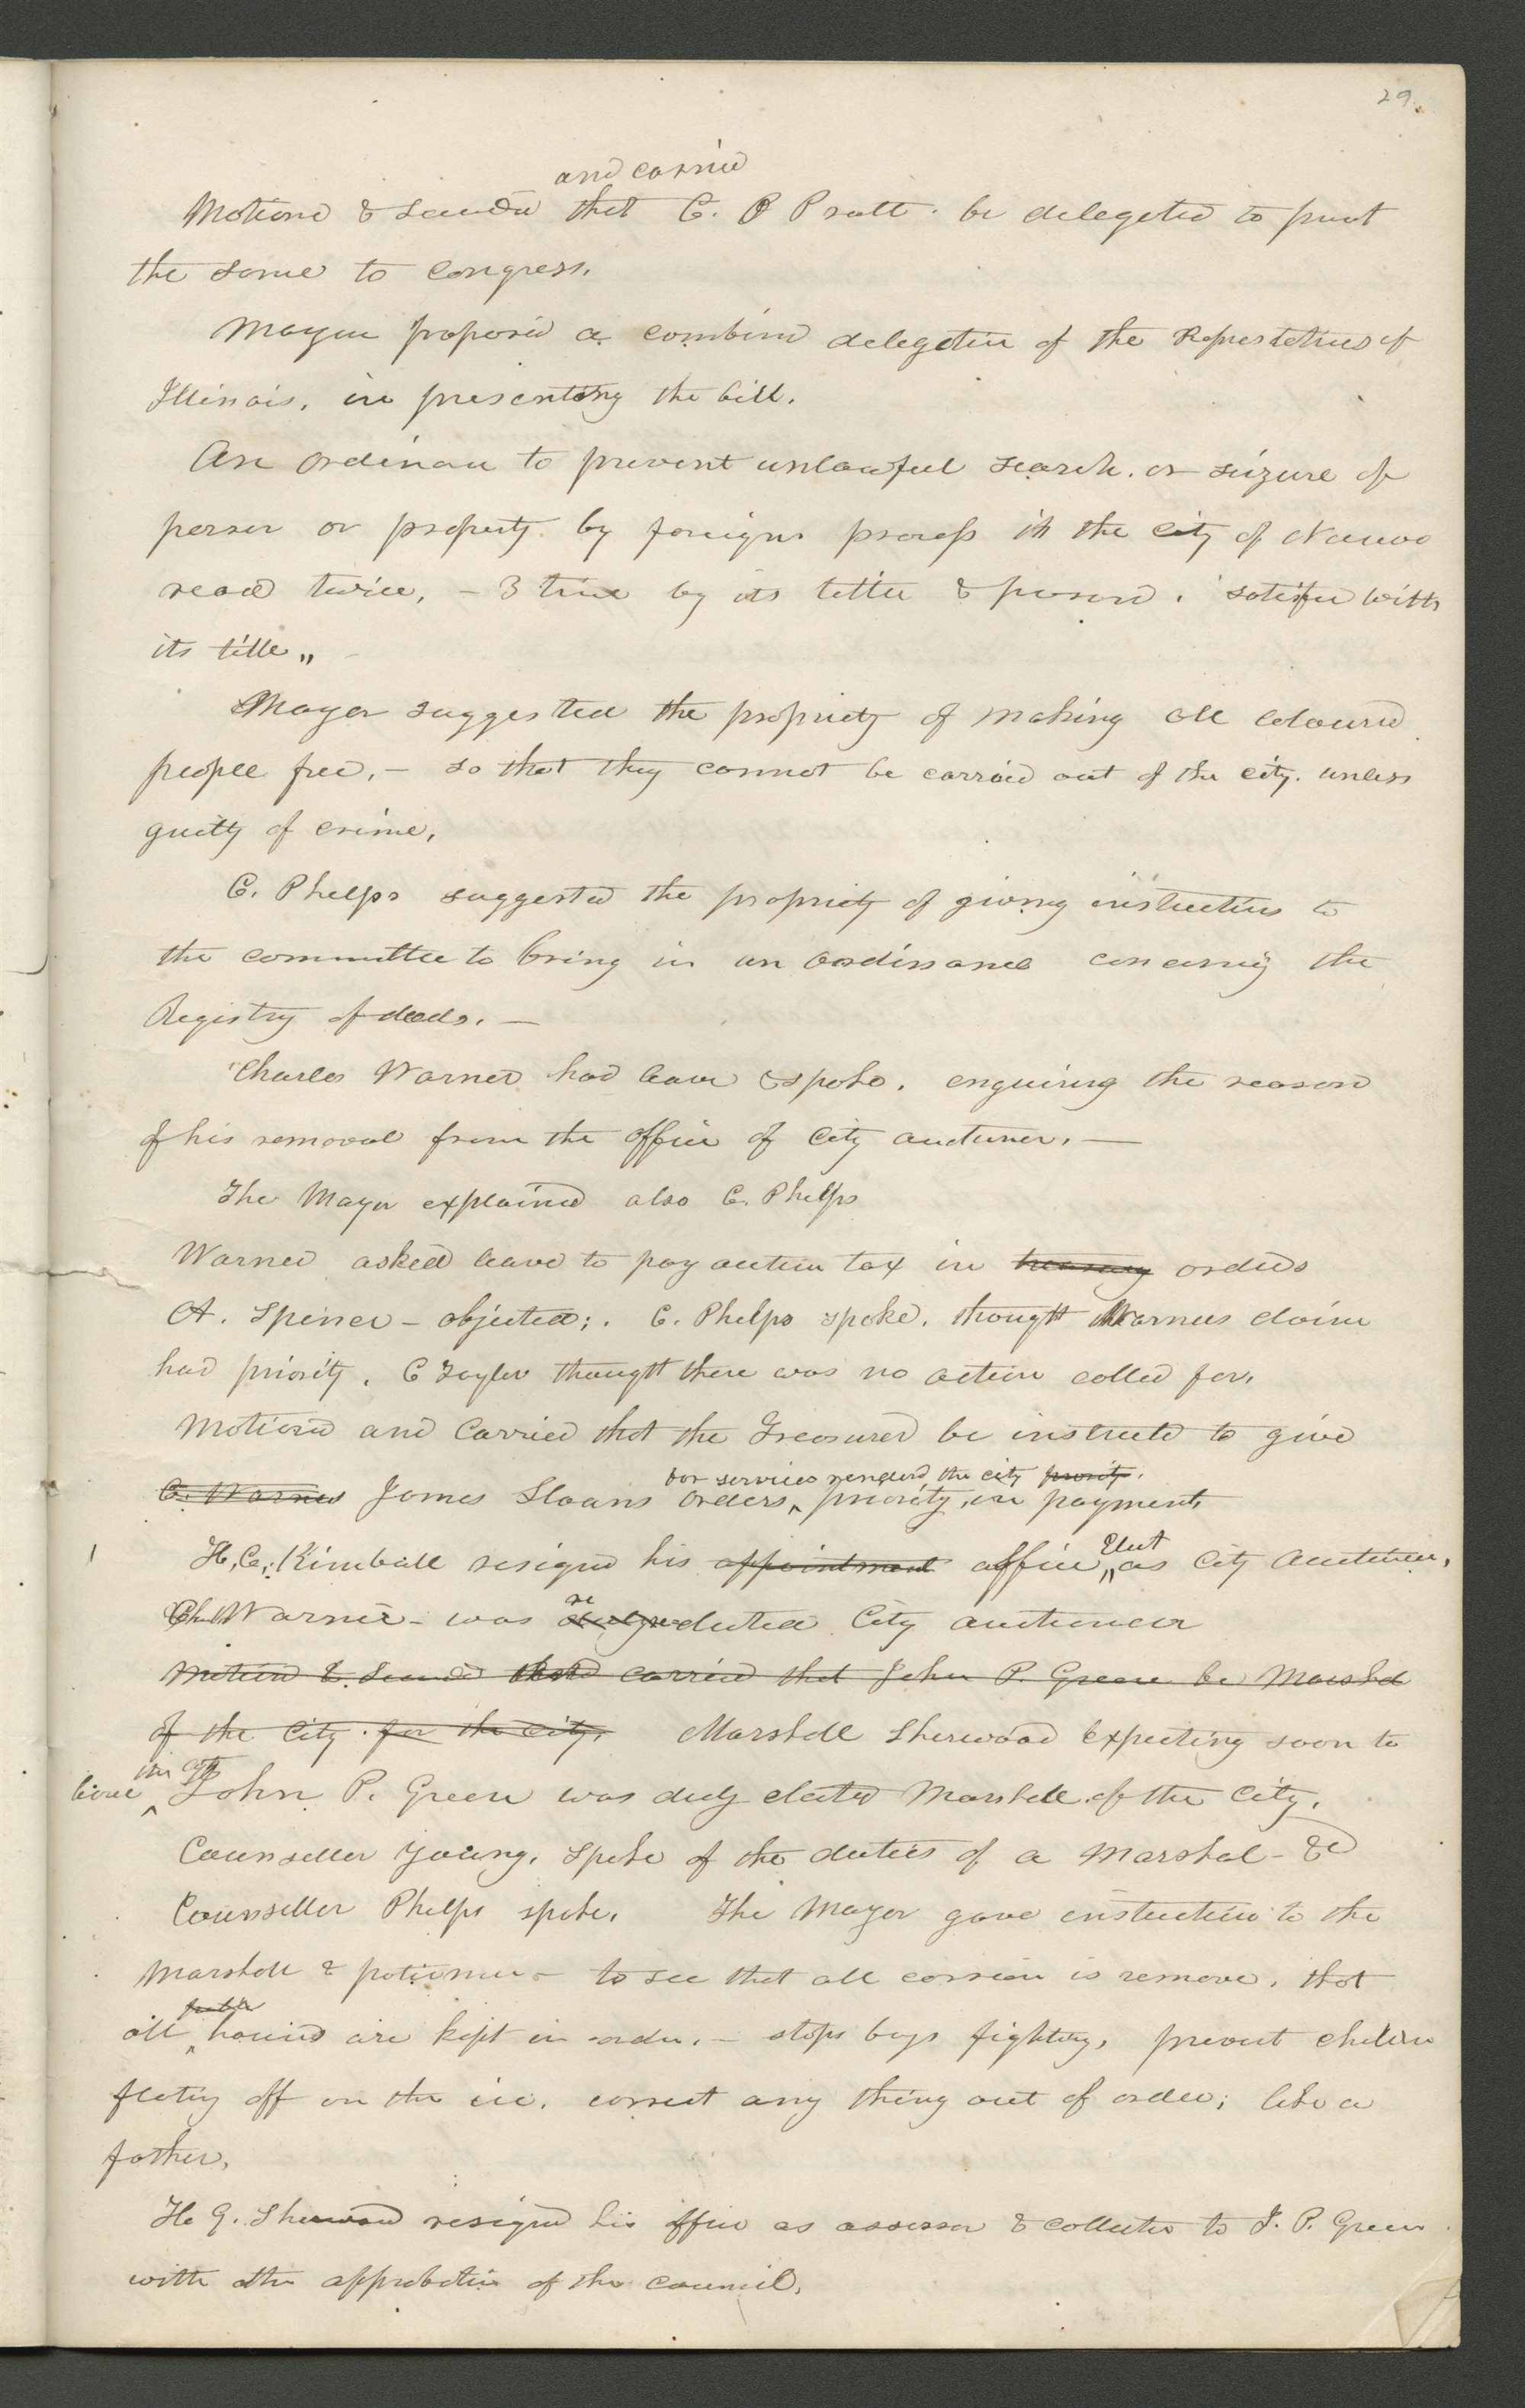 29.
and carried
Motiond & Secondd that C. O Pratt. be delegated to prest
the same to Congress.
Mayor proposed a combind delegation of the Represtatives of
Illinois, in presenting the bill.
An Ordinance to prevent unlawful search. or seizure of
person or property by foreign process in the City of Nauvoo
read twice, - 3 time by its tittle & passed. satisfied with
its title,,
Mayor suggested the propriety of making all coloured
people free,- so that they cannot be carried out of the city. unless
guilty of crime,
C. Phelps suggested the propriety of giving instructions to
the committee to bring in an ordinance concerning the
Registry of deeds.-
Charles Warner had leave & spoke. enquiring the reason
of his removal from the office of City auctioneer.-
The Mayor explained also C. Phelps
Warner asked leave to pay auction tax in treasury orders
A. Spencer - objected;. C. Phelps spoke. thought Warners claim
had priority. C Taylor thought there was no action called for.
Motioned and Carried that the Treasurer be instructed to give
for services renderd the city priority.
C. Warner James Sloans orders, priority, in payment,
Elect
H. C. Kimball resigned his appointment office,, as City Auctioneer,
re
Ch Warner- was elected City auctioneer
Motiond & Secondd carried that John P. Greene be Marshal
of the City. for the City. Marshall Sherwood Expecting soon to
the city
leave John P. Green was duly elected Marshall of the City.
Counseller Young. spoke of the duties of a Marshal- &c
Counseller Phelps spoke. The Mayor gave instruction to the
Marshall & policemen- to see that all carrion is remove. that
public
all houses are kept in order.- stops boys fighting, prevent children
floating off on the ice. correct any thing out of order; like a
father.
H. G. Sherwood resigned his office as assessor & collector to J. P. Green
with the approbation of the council.